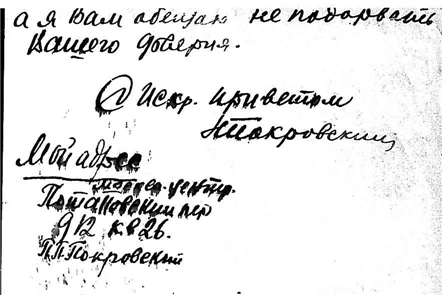 а я Вам обещаю не подорвать
Вашего доверия.
С Искр. приветом
Покровский
Мой адрес
центр.
Потаповский пер
д 12 кв 26.
П.П. Покровский